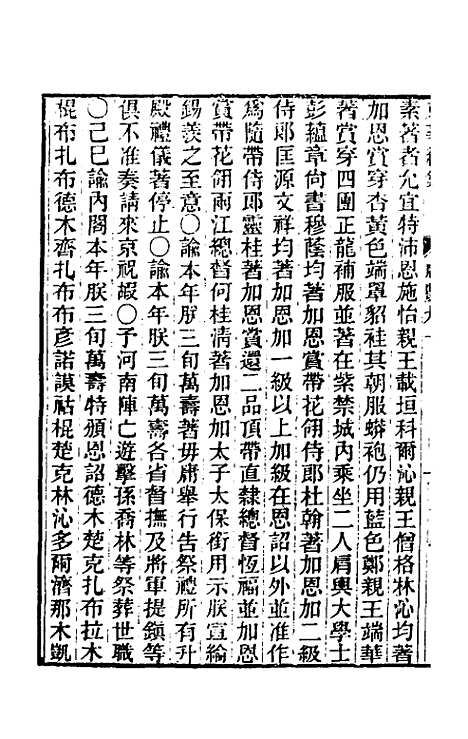 素著者允宜特沛恩施怡親王載垣科爾沁親王僧格林沁均著
加恩賞穿杏黃色端罩貂袿其朝服蟒袍仍用藍色鄭親王端華
著賞穿四團正龍補服並著在紫禁城內乘坐二人肩輿大學士
彭蘊章尙書穆蔭均著加恩賞帶花翎侍郎杜翰著加恩加二級
侍郎匡源文祥均著加恩加一級以上加級在恩詔以外並准作
爲隨帶侍郎靈桂著加恩賞還二品頂帶直隸總督恆福並加恩
賞帶花翎兩江總督何桂淸著加恩加太子太保銜用示朕宣綸
錫羨之至意〇諭本年朕三旬萬壽著毋庸舉行吿祭禮所有升
殿禮儀著停止〇諭本年朕三旬萬壽各省督撫及將軍提鎭等
俱不准奏請來京祝嘏〇予河南陣亡遊擊孫喬林等祭葬世職
〇己巳諭內閣本年朕三旬萬壽特頒恩詔德木楚克扎布拉木
棍布扎布德木齊扎布布彥諾謨祜棍楚克林沁多爾濟那木凱